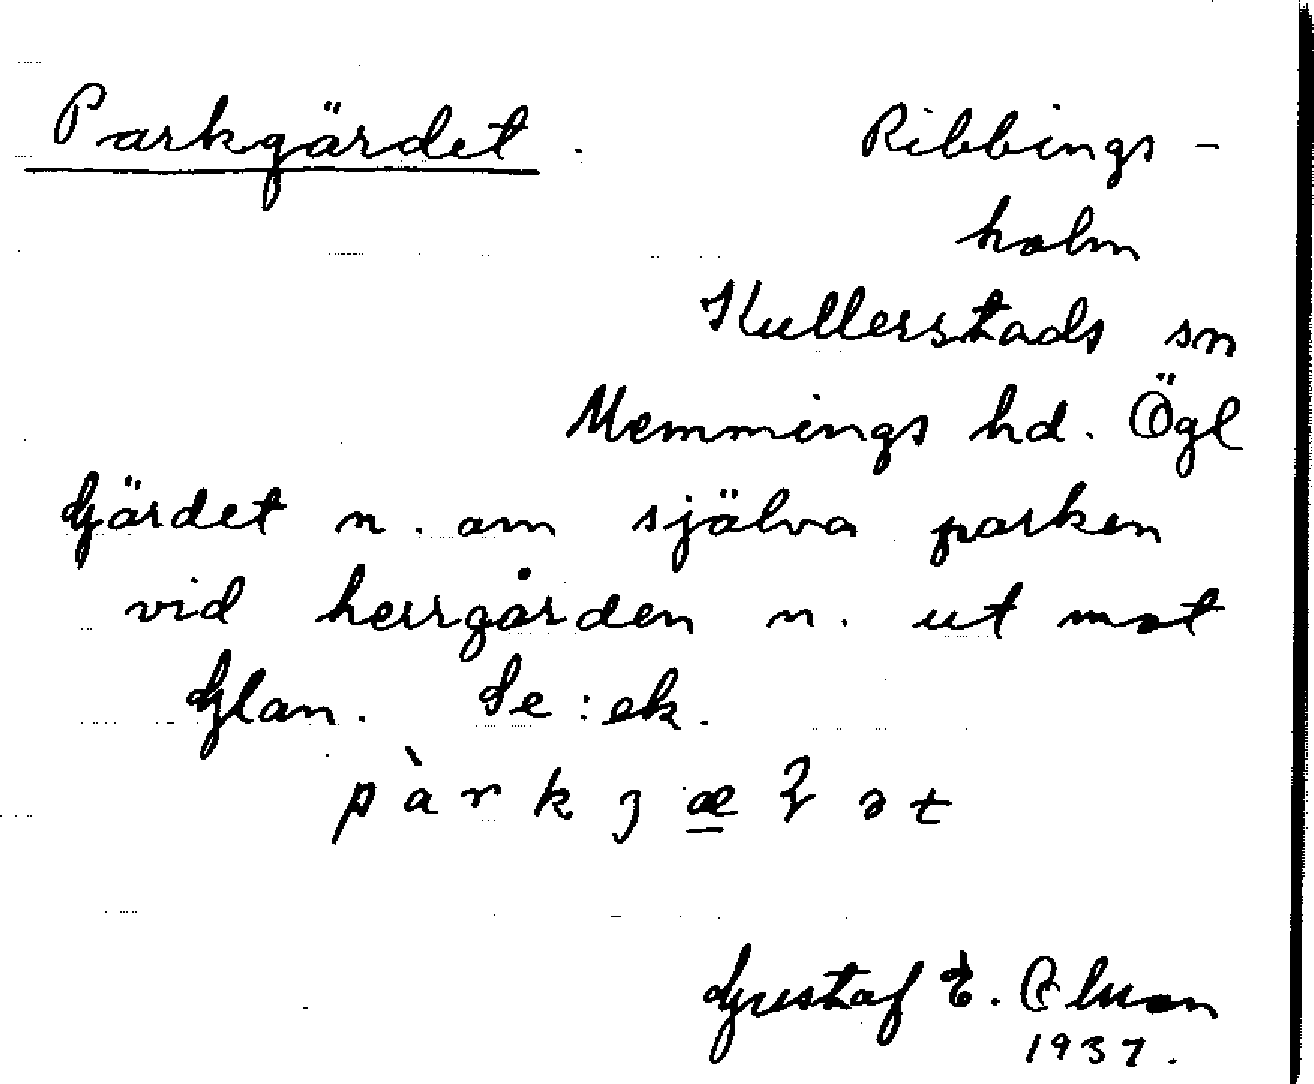 Parkgärdet. Ribbings-
holm
Kullerstads sn
Memmings hd. Ögl
Gärdet n. om själva parken
vid herrgården n. ut mot
Glan. Se: ek.
Gustaf E. Olsson
1937.